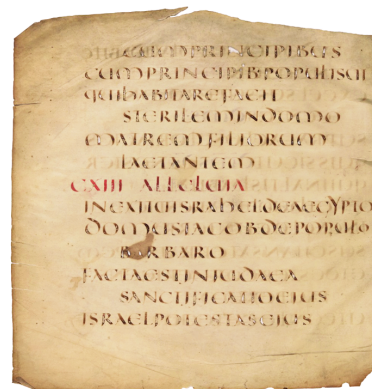 CUMPRINCIPIBUS
CUMPRINCIPIBPOPULISUI
QUIHABITAREFACIT
STERILEMINDOMO
MATREMFILIORUM
LAETANTEM
CXIII ALLELUIA
INEXITUISRAHELDEAEGYPTO
DOMUSIACOBDEPOPULO
BARBARO
FACTAESTINIUDAEA
SANCTIFICATIOEIUS
ISRAELPOTESTASEIUS